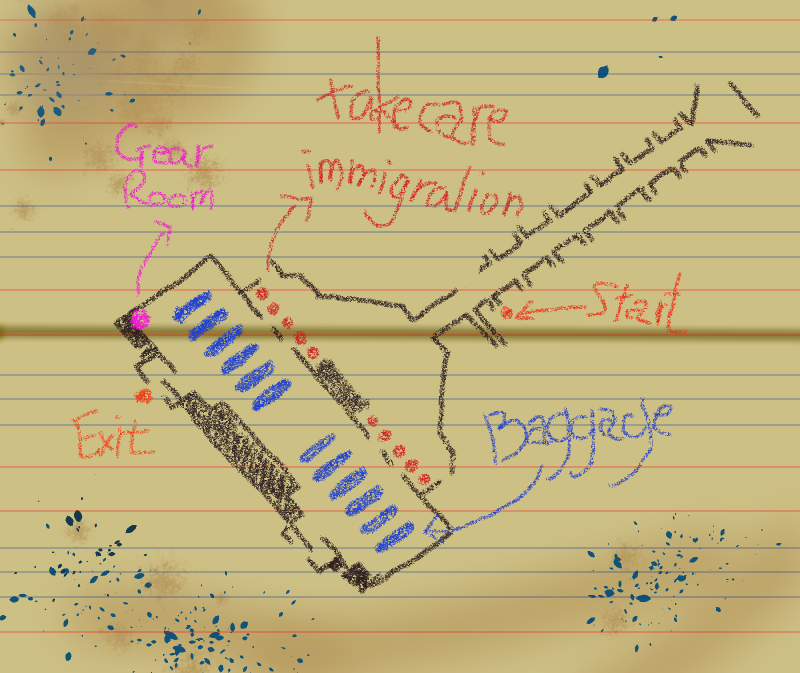 takecare
immigration
Gear
Room
Start
Exit
Baggage